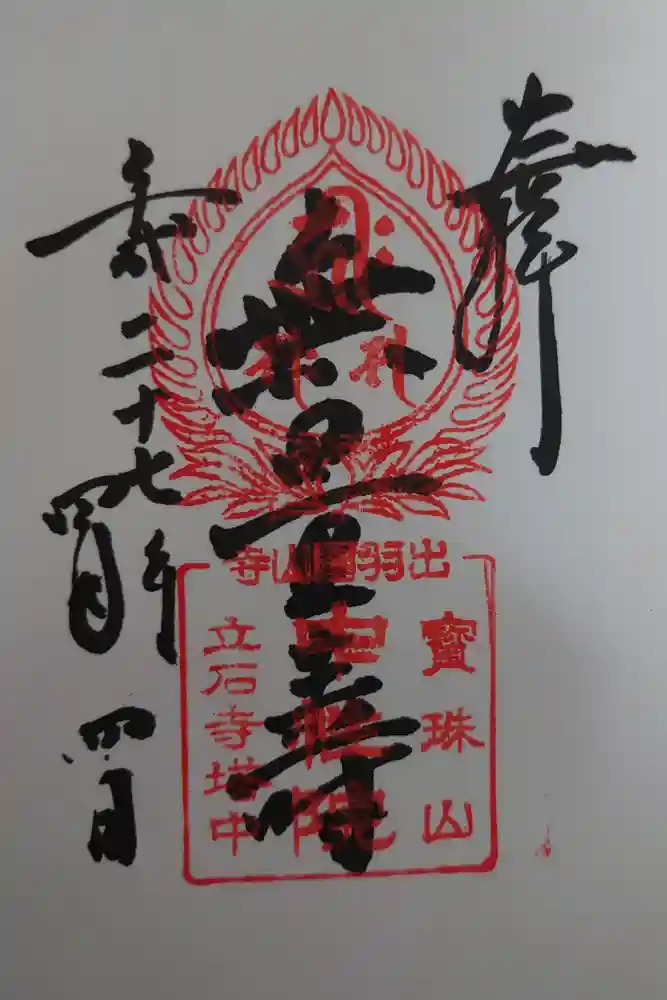 奉
無量寿
平成二十七年
四月
四日
出羽國山寺
寶珠山
中性院
立石寺塔中